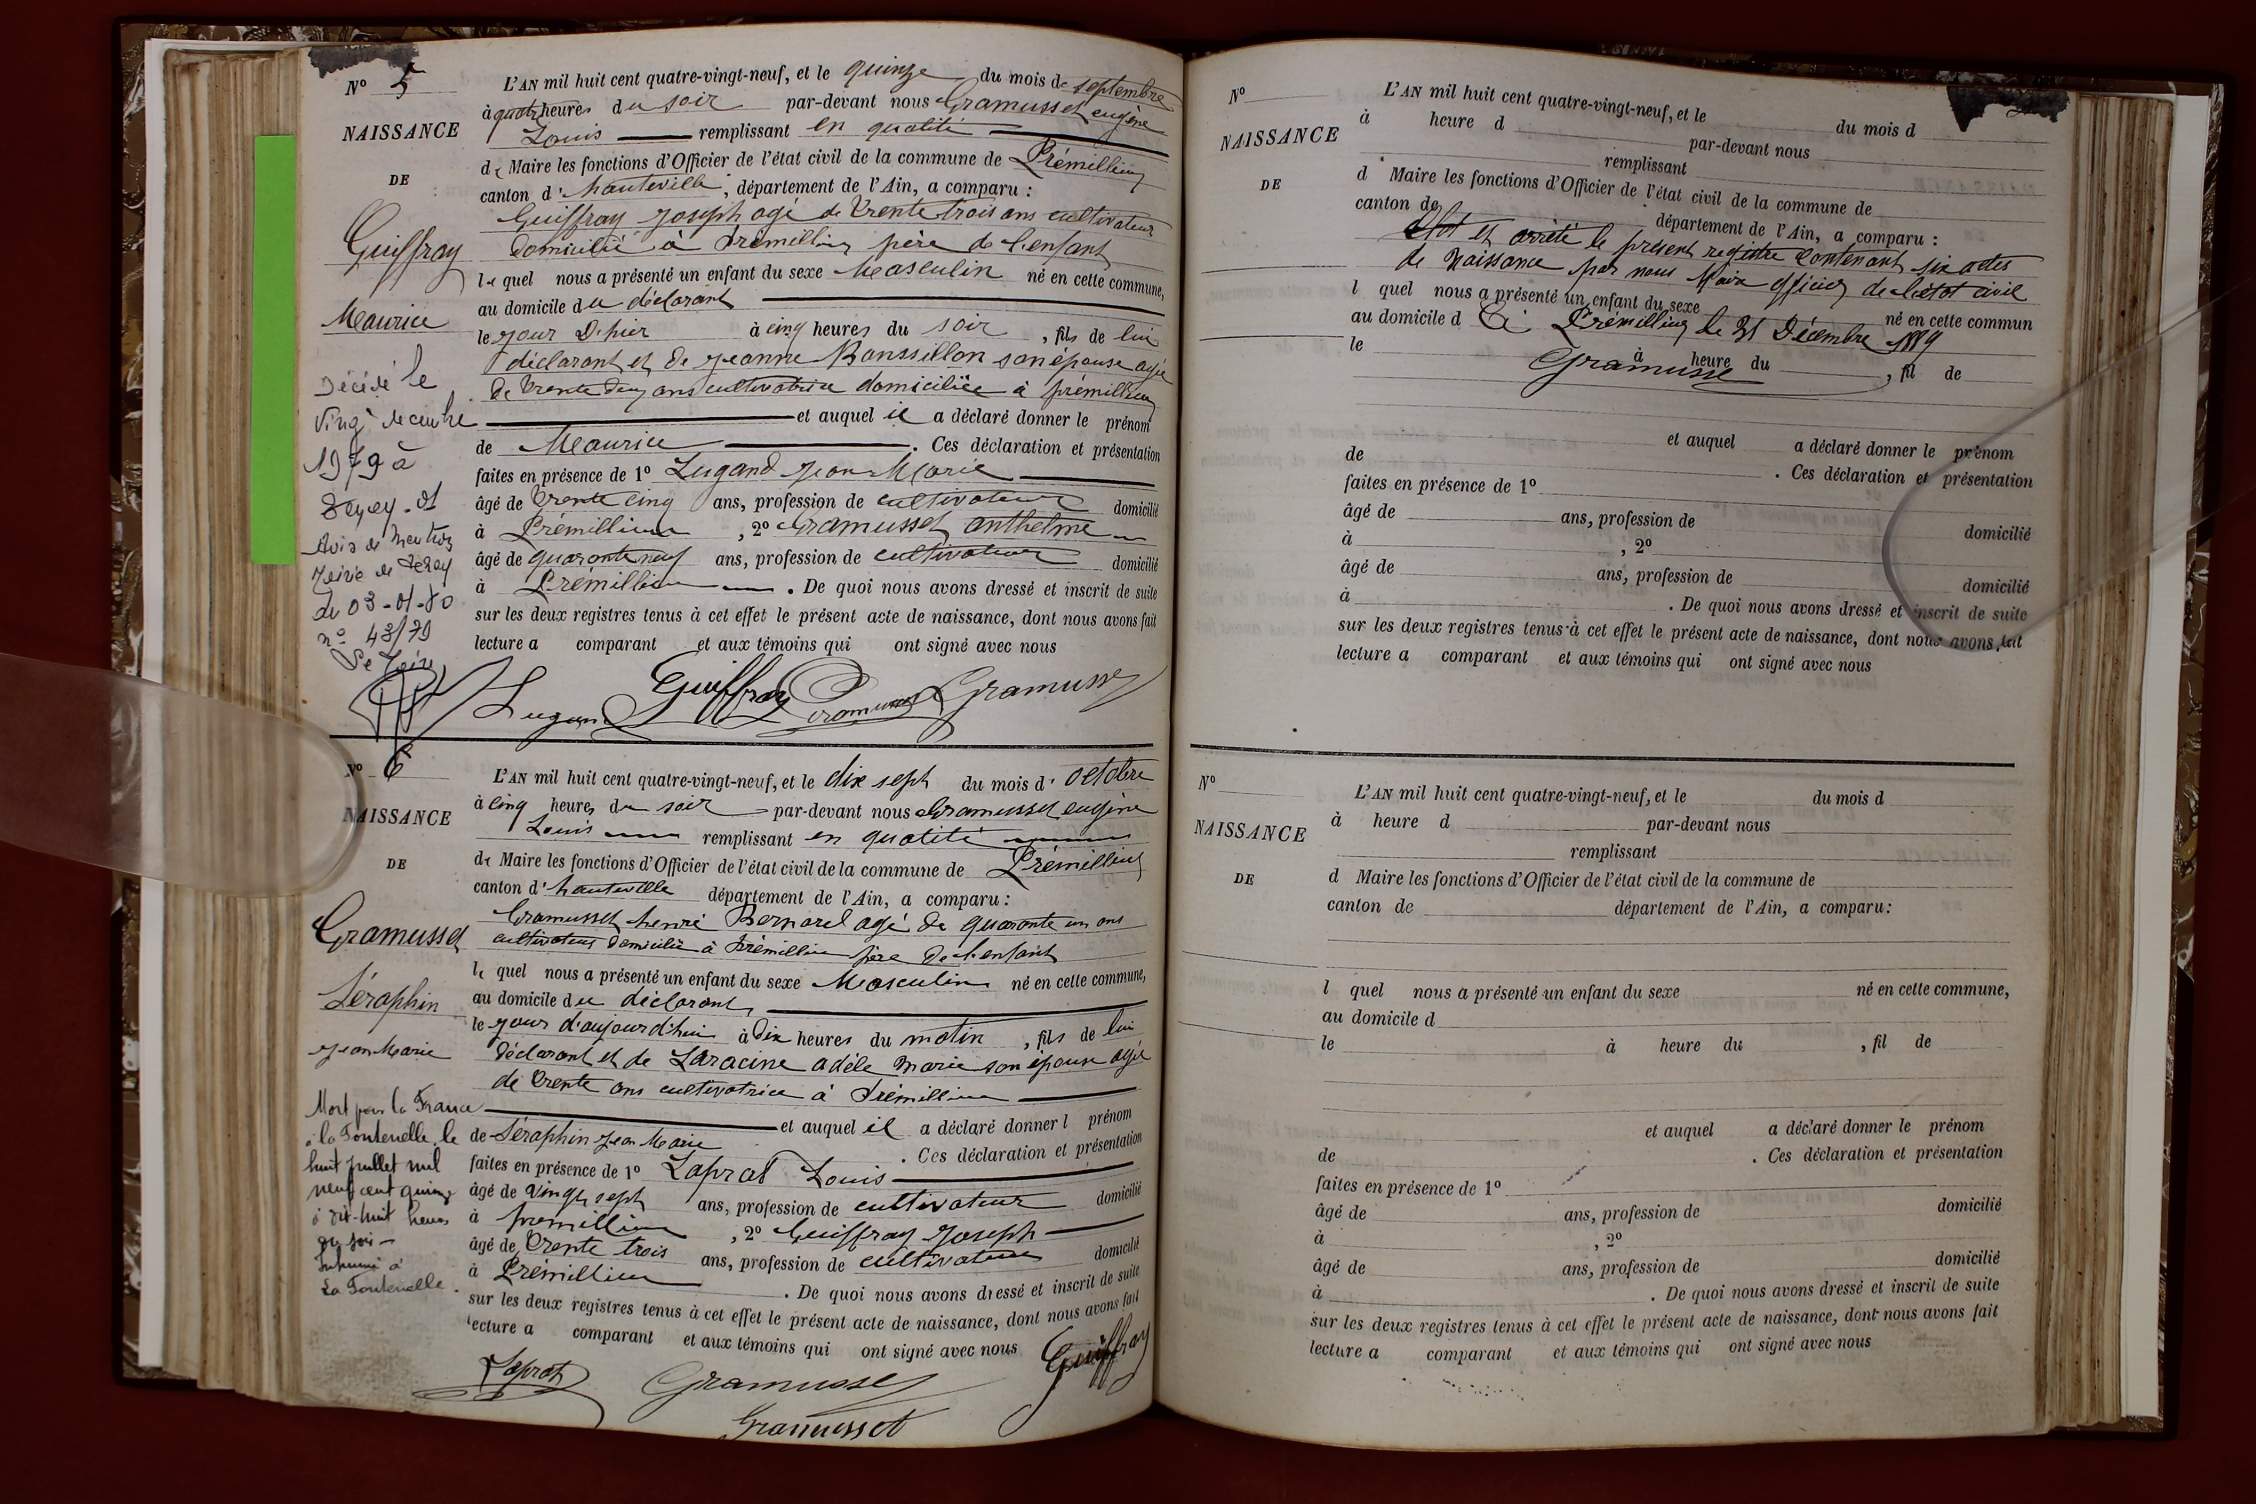 N° 5
NAISSANCE
DE
Guiffray
Maurice
Décédé le
vingt decembre
1979 à
Belley - 01
Avis de Mention
Mairie de Belley
du 03-01-80
n° 43/79
Le Maire
L'AN mil huit cent quatre-vingt-neuf, et le quinze du mois de septembre
à quatre heures du soir par-devant nous Gramusset eugène
Louis remplissant en qualité
de Maire les fonctions d'Officier de l'état civil de la commune de Prémillieu
canton d'hauteville, département de l'Ain, a comparu :
Guiffray Joseph agé de trente trois ans cultivateur
domicilié à Prémillieu père de l'enfant
lequel nous a présenté un enfant du sexe Masculin né en cette commune,
au domicile du déclarant
le jour d'hier à cinq heures du soir, fils de lui
déclarant et de jeanne Bonssillon son épouse agée
de trente deux ans cultivatrice domiciliée à prémillieu
et auquel il a déclaré donner le prénom
de Maurice. Ces déclaration et présentation
faites en présence de 1° Lugand jean-Marie
âgé de trente cinq ans, profession de cultivateur domicilié
à Prémillieu, 2° Gramusset anthelme
âgé de quarante neuf ans, profession de cultivateur domicilié
à Prémillieu. De quoi nous avons dressé et inscrit de suite
sur les deux registres tenus à cet effet le présent acte de naissance, dont nous avons fait
lecture a comparant et aux témoins qui ont signé avec nous
Lugand Guiffray Gramusset Gramusset
N° 6
NAISSANCE
DE
Gramusset
Séraphin
jean Marie
Mort pour la France
à la Fontenelle le
huit juillet mil
neuf cent quinze
à dix-huit heures
du soir
Inhumé à
La Fontenelle.
L'AN mil huit cent quatre-vingt-neuf, et le dix sept du mois d'octobre
à cinq heures du soir par-devant nous Gramusset eugène
Louis remplissant en qualité
de Maire les fonctions d'Officier de l'état civil de la commune de Prémillieu
canton d'hauteville département de l'Ain, a comparu :
Gramusset henri Bernard agé de quarante un ans
cultivateur domicilié à Prémillieu père de l'enfant
lequel nous a présenté un enfant du sexe Masculin né en cette commune,
au domicile du déclarant
le jour d'aujourd'hui à dix heures du matin, fils de lui
déclarant et de Laracine adèle marie son épouse agée
de trente ans cultivatrice à Prémillieu
et auquel il a déclaré donner l prénom
de Séraphin jean Marie. Ces déclaration et présentation
faites en présence de 1° Laprat Louis
âgé de vingt sept ans, profession de cultivateur domicilié
à premillieu, 2° Guiffray Joseph
âgé de trente trois ans, profession de cultivateur domicilié
à Prémillieu. De quoi nous avons dressé et inscrit de suite
sur les deux registres tenus à cet effet le présent acte de naissance, dont nous avons fait
lecture a comparant et aux témoins qui ont signé avec nous
Laprat Gramusset Guiffray
Gramusset
N°
NAISSANCE
DE
L'AN mil huit cent quatre-vingt-neuf, et le du mois d
à heure d par-devant nous
remplissant
d Maire les fonctions d'Officier de l'état civil de la commune de
canton de département de l'Ain, a comparu :
Clot et arrêté le présent registre contenant six actes
de Naissance par nous Maire officier de l'état civil
l quel nous a présenté un enfant du sexe né en cette commun
au domicile d
Prémillieu le 31 Décembre 1889
le à heure du, fil de
Gramusset
et auquel a déclaré donner le prénom
de. Ces déclaration et présentation
faites en présence de 1°
âgé de ans, profession de domicilié
à, 2°
âgé de ans, profession de domicilié
à. De quoi nous avons dressé et inscrit de suite
sur les deux registres tenus à cet effet le présent acte de naissance, dont nous avons fait
lecture a comparant et aux témoins qui ont signé avec nous
N°
NAISSANCE
DE
L'AN mil huit cent quatre-vingt-neuf, et le du mois d
à heure d par-devant nous
remplissant
d Maire les fonctions d'Officier de l'état civil de la commune de
canton de département de l'Ain, a comparu :
l quel nous a présenté un enfant du sexe né en cette commune,
au domicile d
le à heure du, fil de
et auquel a déclaré donner le prénom
de. Ces déclaration et présentation
faites en présence de 1°
âgé de ans, profession de domicilié
à, 2°
âgé de ans, profession de domicilié
à. De quoi nous avons dressé et inscrit de suite
sur les deux registres tenus à cet effet le présent acte de naissance, dont nous avons fait
lecture a comparant et aux témoins qui ont signé avec nous